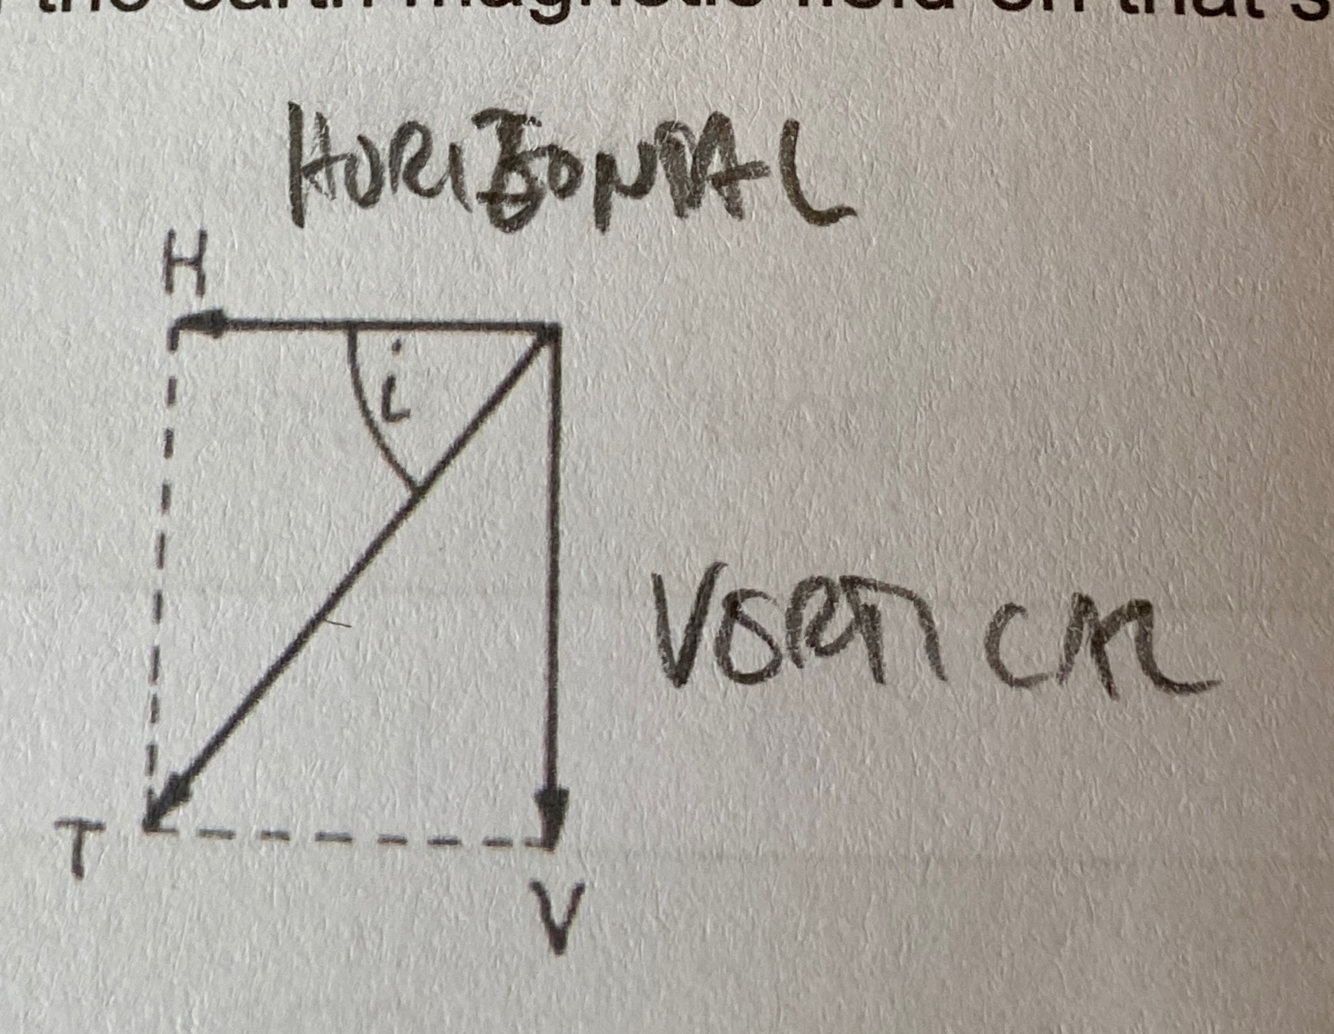 the earth magnetic field on that s
HORIZONTAL
H
i
VERTICAL
T
V